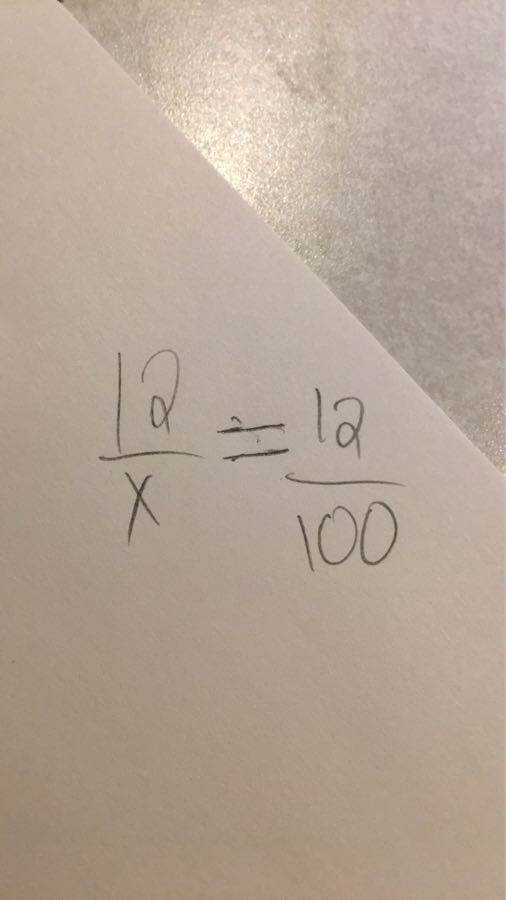 12/x = 12/100